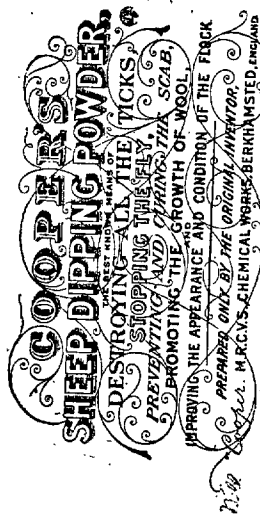 COOPER'S
SHEEP DIPPING POWDER,
THE BEST KNOWN MEANS OF
DESTROYING ALL THE TICKS,
STOPPING THE FLY,
PREVENTING AND CURING THE SCAB,
PROMOTING THE GROWTH OF WOOL,
AND
IMPROVING THE APPEARANCE AND CONDITION OF THE FLOCK
PREPARED ONLY BY THE ORIGINAL INVENTOR,
Wm Cooper. M.R.C.V.S. CHEMICAL WORKS, BERKHAMSTED, ENGLAND